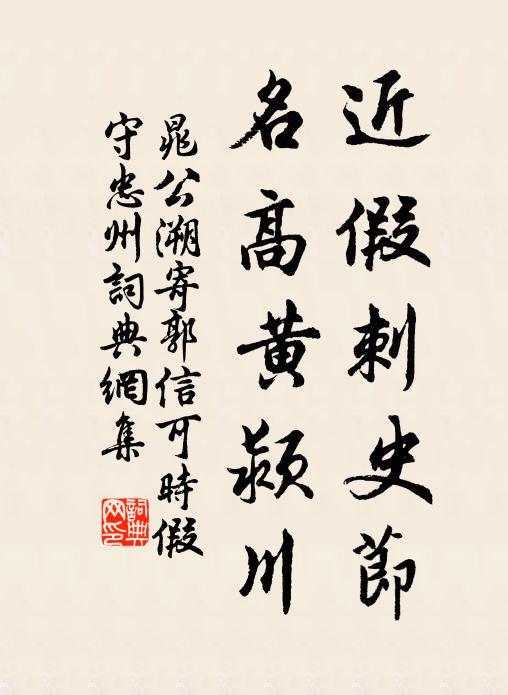 近假刺史節
名高黄潁川
晁公溯寄郭信可時假
守忠州詞典網集
詞典網印